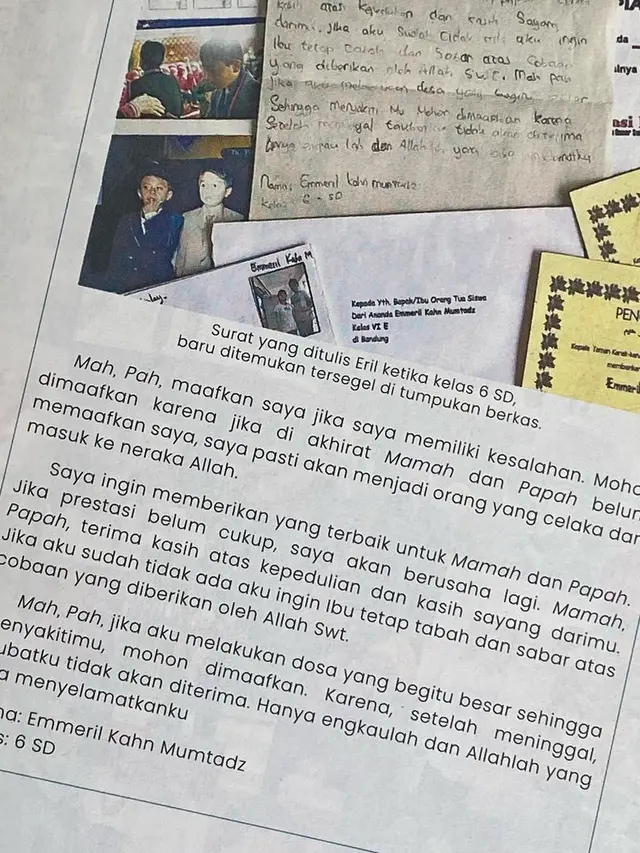 kasih atas kepedulian dan kasih sayang
darimu. Jika aku sudah tidak ada aku ingin
Ibu tetap tabah dan sabar atas cobaan
yang diberikan oleh Allah SWT. Mah pah
Jika aku melakukan dosa yang begitu besar
Sehingga menyakiti Mu Mohon dimaafkan karena
Setelah meninggal taubatku tidak akan diterima
Hanya engkau lah dan Allah lah yang
Nama: Emmeril Kahn Mumtadz
Kelas: 6 - SD
Emmeril Kahn M
Kepada Yth. Bapak/Ibu Orang Tua Siswa
Dari Ananda Emmeril Kahn Mumtadz
Kelas VI E
di Bandung
PEN
Kepala Taman Kanak-kanak
Surat yang ditulis Eril ketika kelas 6 SD,
baru ditemukan tersegel di tumpukan berkas.
Mah, Pah, maafkan saya jika saya memiliki kesalahan. Moho
dimaafkan karena jika di akhirat Mamah dan Papah belum
memaafkan saya, saya pasti akan menjadi orang yang celaka dan
masuk ke neraka Allah.
Saya ingin memberikan yang terbaik untuk Mamah dan Papah.
Jika prestasi belum cukup, saya akan berusaha lagi. Mamah,
Papah, terima kasih atas kepedulian dan kasih sayang darimu.
Jika aku sudah tidak ada aku ingin Ibu tetap tabah dan sabar atas
cobaan yang diberikan oleh Allah Swt.
Mah, Pah, jika aku melakukan dosa yang begitu besar sehingga
enyakitimu, mohon dimaafkan. Karena, setelah meninggal,
ubatku tidak akan diterima. Hanya engkaulah dan Allahlah yang
a menyelamatkanku
na: Emmeril Kahn Mumtadz
s: 6 SD